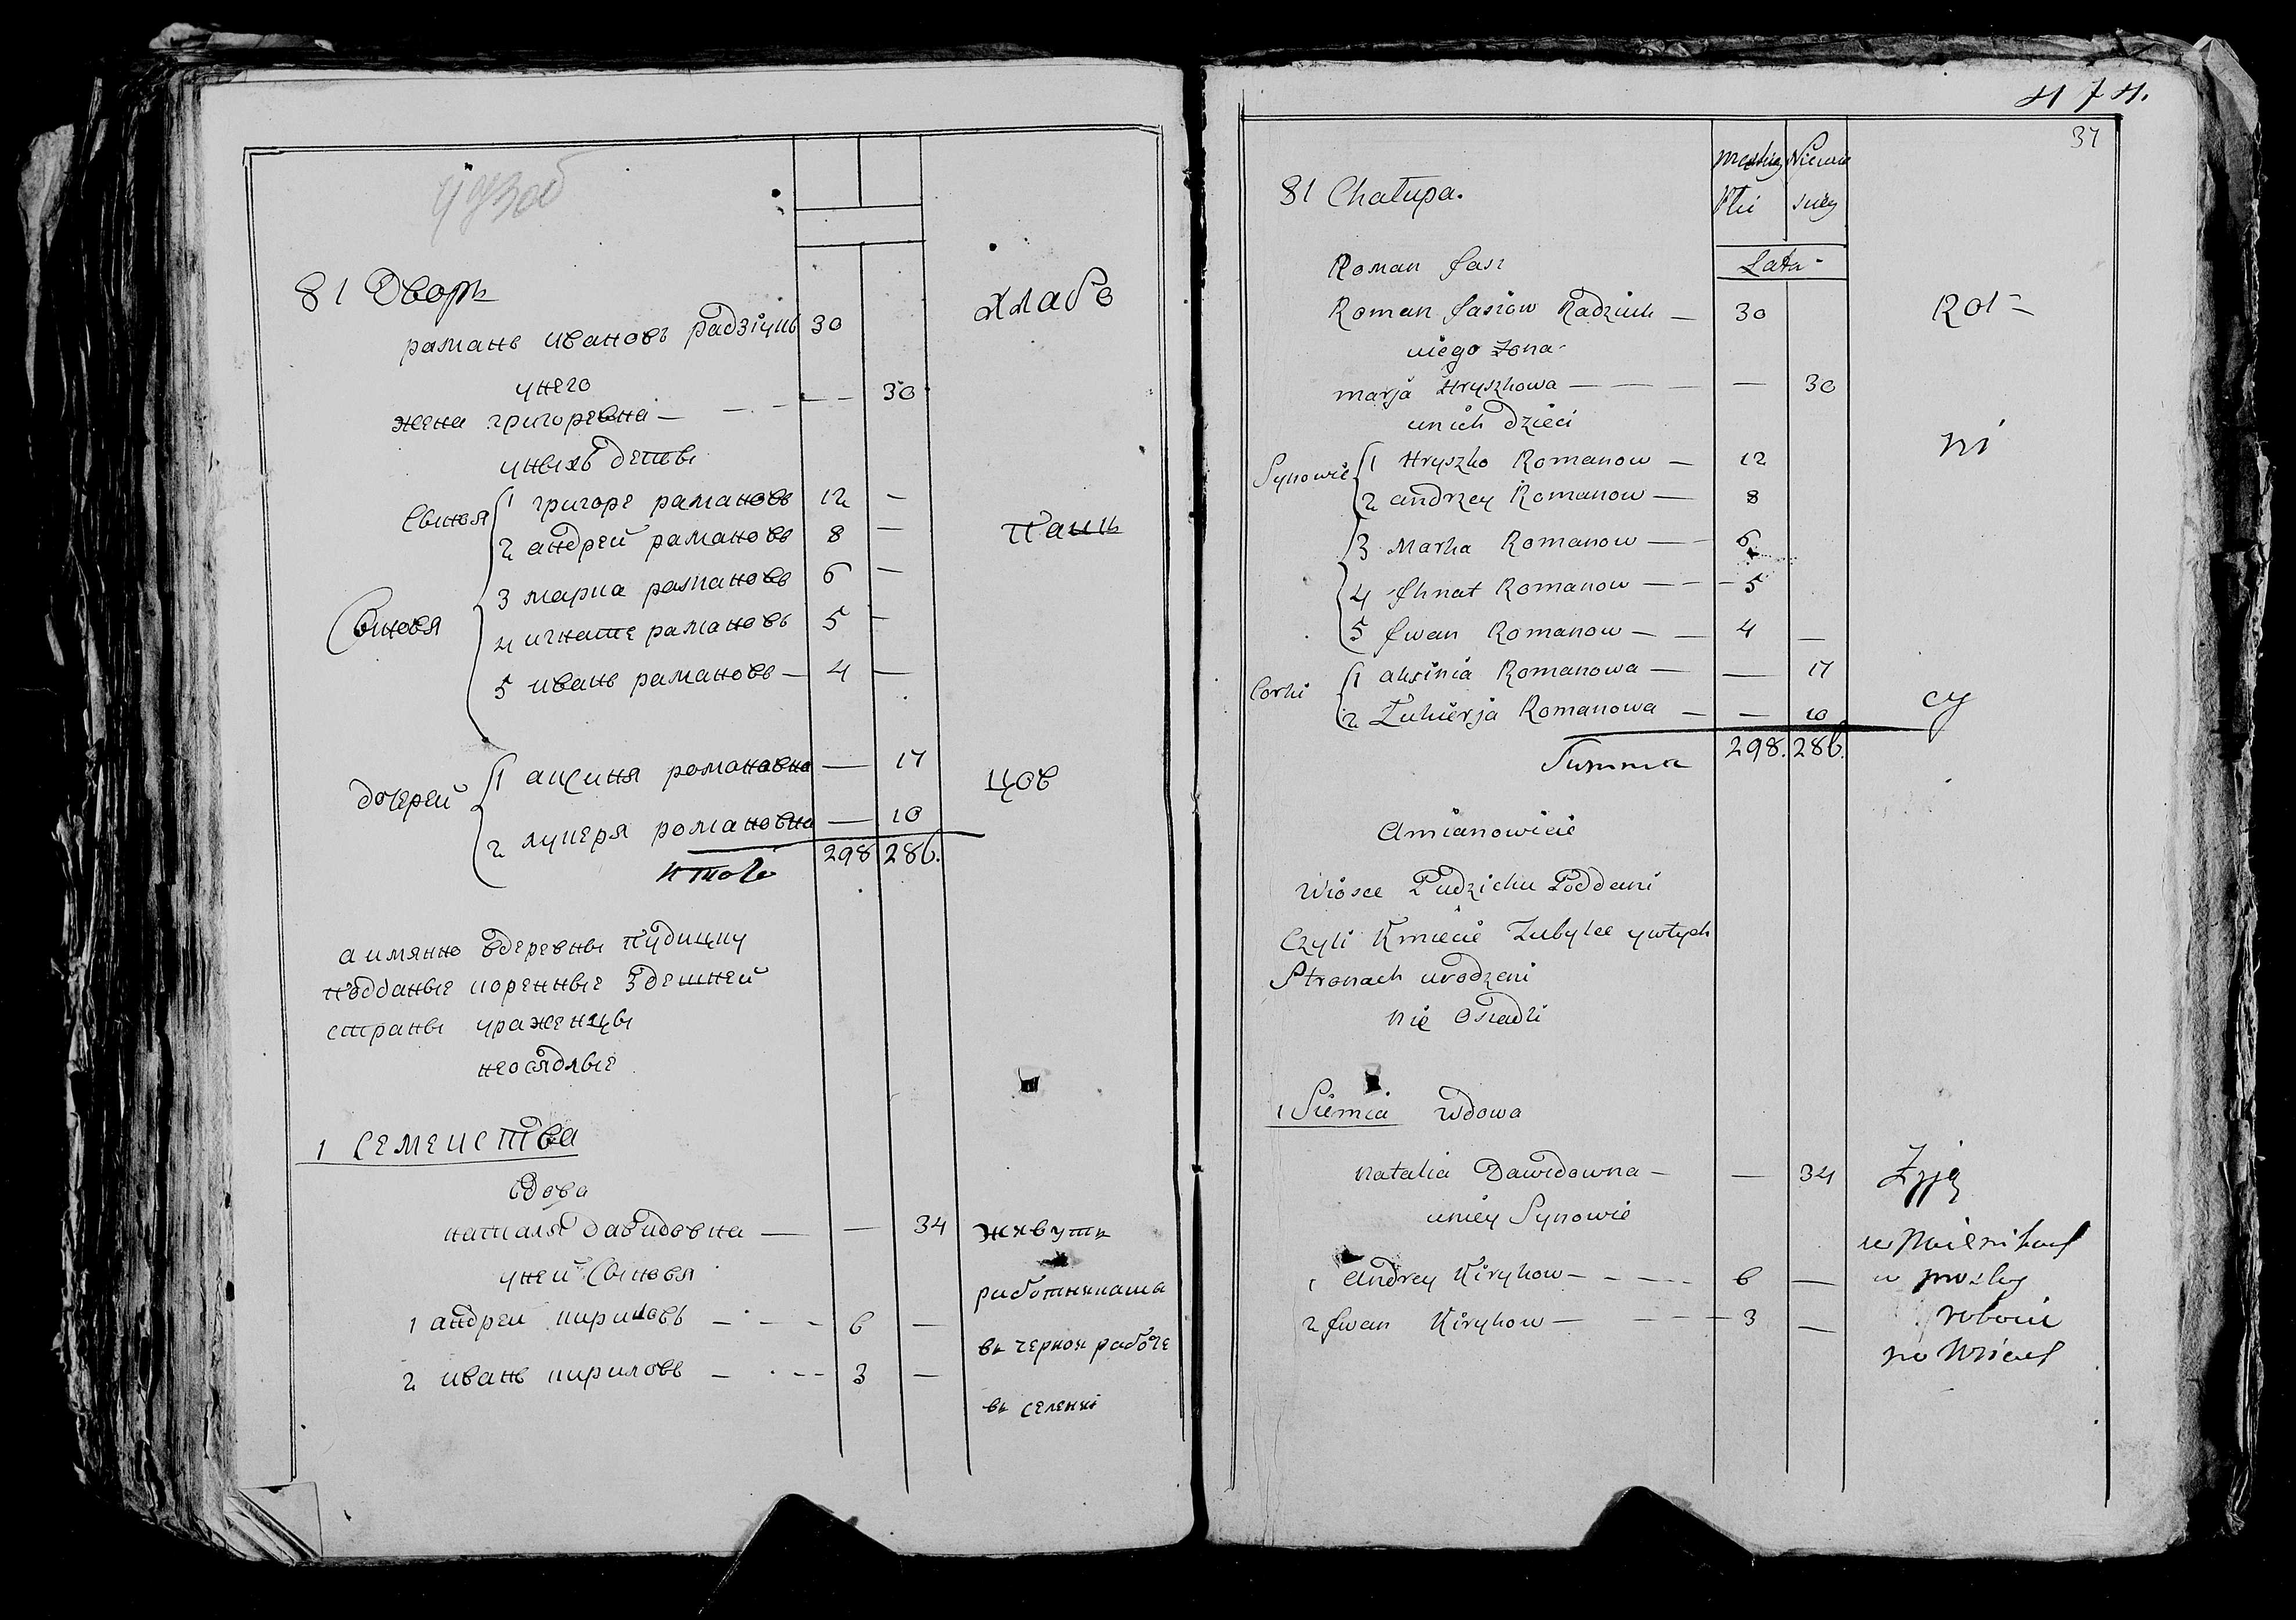 81 Дворъ
раманъ ивановъ радзіукъ 30
хлабо
у него
жена григоревна — — — 30
унихъ дети
Синовя
1 григоре рамановъ 12 —
2 андрей рамановъ 8 —
пашъ
Синовя
3 марка рамановъ 6 —
4 игнате рамановъ 5 —
5 иванъ рамановъ — 4 —
дочерей
1 аксиня романовна — 17
цов
2 лукеря романовна — 10
итого 298 286.
а имянно вдеревны пудицку
подданые коренные здешней
страны уроженцы
неосядлые
1 Семейства
вдова
наталя давидовна — — 34 живутъ
уней Синовя
работниками
1 андрей кириловъ — — — 6 —
въ черной работе
2 иванъ кириловъ — — — 3 —
въ селении
474.
37
Męskiey Niewie
Płci sciey
81 Chałupa.
Lata
Roman Jan
Roman Jasiow Radziuk — 30
Rol=
uiego żona
marja Hryszkowa — — — — 30
unich dzieci
ni
Synowie
1 Hryszko Romanow — 12
2 andrzey Romanow — 8
3 Marka Romanow — 6
4 Ihnat Romanow — — — 5
5 Iwan Romanow — — 4 —
Corki
1 aksinia Romanowa — — 17
cy
2 Łukierja Romanowa — — 10
Summa 298. 286.
Amianowicie
Wiosce Pudzicku Poddani
Czyli Kmiecie Zubylce ywtych
Stronach urodzeni
nie Osiadli
1 Siemia wdowa
Natalia Dawidowna — — 34 Żyją
uniey Synowie
w Naiemikach
1 Andrey Kirykow — — — — 6 —
w prostey
2 Iwan Kirykow — — — — 3 —
roboci